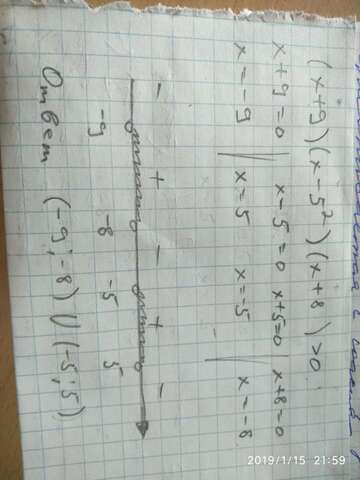 (x+9)(x-5²)(x+8)>0
x+9=0 | x-5=0 x+5=0 | x+8=0
x=-9 | x=5 x=-5 | x=-8
- + - + -
-9 -8 -5 5
Ответ (-9;-8) U (-5;5)
2019/1/15 21:59